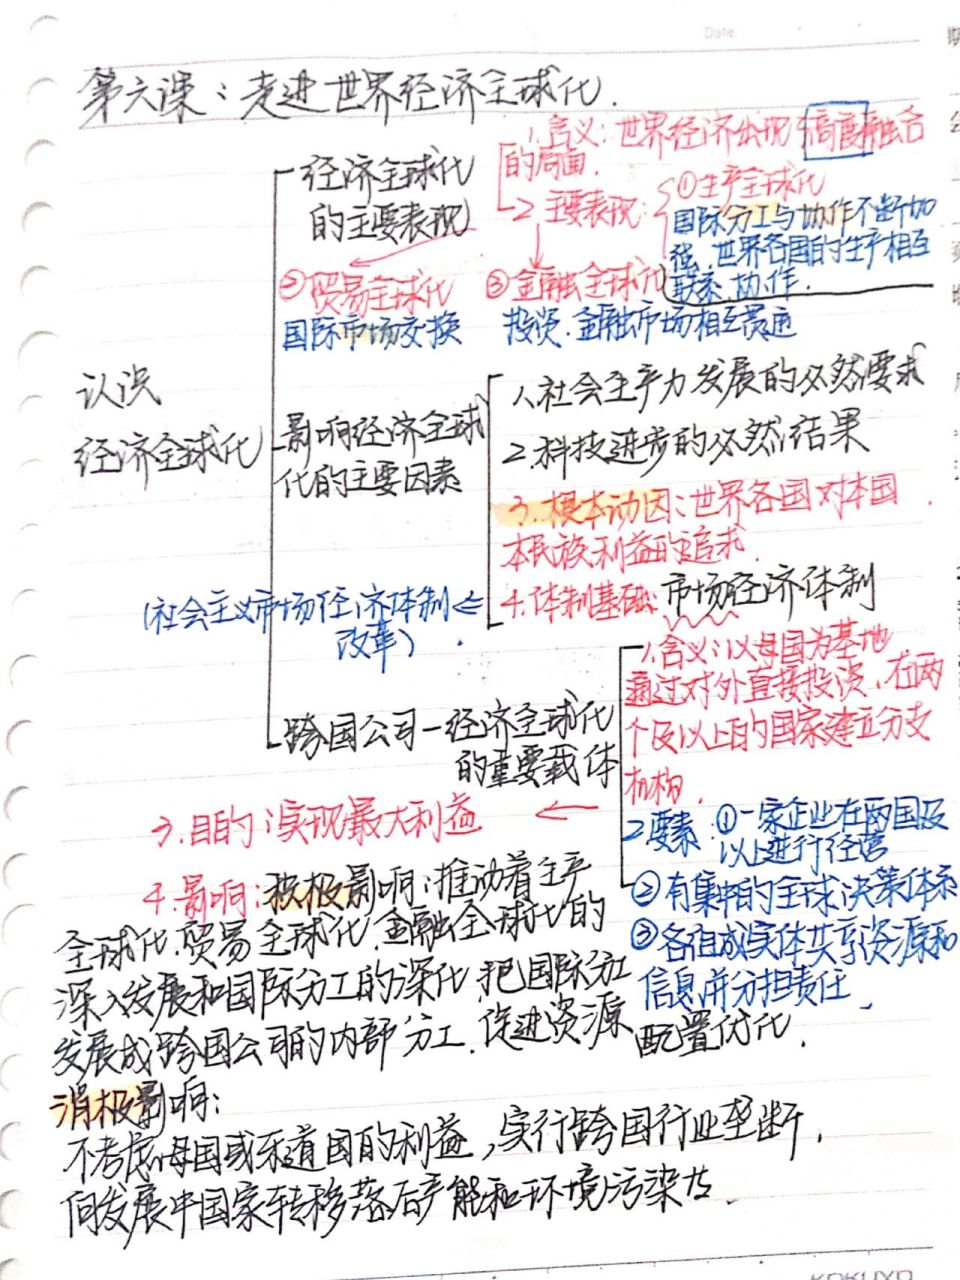 Date
第六课：走进世界经济全球化.
经济全球化
的主要表现
1.含义：世界经济出现高度融合
的局面.
2 主要表现：
①生产全球化
国际分工与协作不断加
强,世界各国的生产相互
联系,协作.
②贸易全球化
国际市场交换
③金融全球化
投资.金融市场相互贯通
认识
经济全球化
影响经济全球
化的主要因素
1.社会生产力发展的必然要求
2.科技进步的必然结果
3.根本动因：世界各国对本国
本民族利益的追求.
4.体制基础：市场经济体制
(社会主义市场经济体制
改革)
跨国公司—经济全球化
的重要载体
1.含义：以母国为基地
通过对外直接投资,在两
个及以上的国家建立分支
机构.
2要素：①一家企业在两国及
以上进行经营
②有集中的全球决策体系
③各组成实体共享资源和
信息,并分担责任.
3.目的：实现最大利益
4.影响：积极影响：推动着生产
全球化.贸易全球化.金融全球化的
深入发展和国际分工的深化,把国际分工
发展成跨国公司的内部分工.促进资源
配置优化.
消极影响：
不考虑母国或东道国的利益,实行跨国行业垄断,
向发展中国家转移落后产能和环境污染等.
KOKUYO